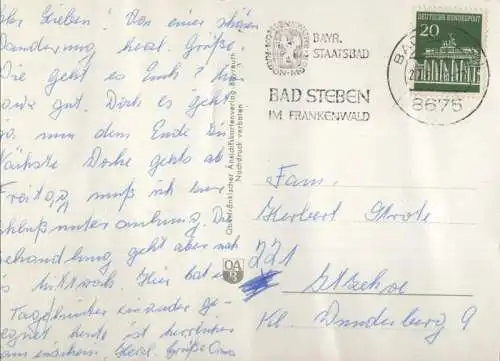 Ihr Lieben! Von einer schönen
Wanderung herzl. Grüße.
Wie geht es Euch? Uns
ganz gut. Doch es geht
nun dem Ende zu
Nächste Woche geht's ab
Freitag muß ich zur
Schlußuntersuchung. Die
Behandlung geht aber noch
bis Mittwoch. Hier hat es
Tage hintereinander ge-
regnet heute ist herrlicher
Herzl. Grüße Oma
BAYR.
STAATSBAD
BAD STEBEN
IM FRANKENWALD
DEUTSCHE BUNDESPOST
20
8675
Oberfränkischer Ansichtskartenverlag Bayreuth
Nachdruck verboten
OA
B
Fam.
Herbert Strote
221 Itzehoe
Kl. Wunderberg 9